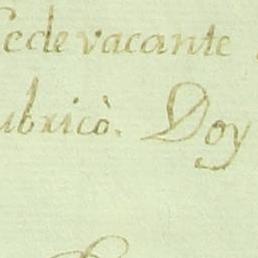 Sede vacante
ubricò. Doy